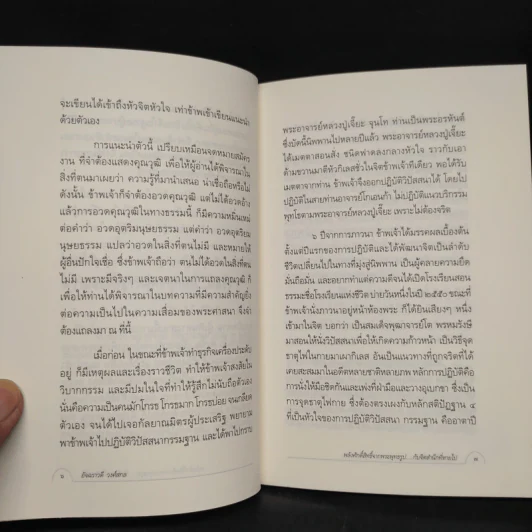 จะเขียนได้เข้าถึงหัวจิตหัวใจ เท่าข้าพเจ้าเขียนแนะนำ
ด้วยตัวเอง
การแนะนำตัวนี้ เปรียบเหมือนจดหมายสมัคร
งาน ที่จำต้องแสดงคุณวุฒิ เพื่อให้ผู้อ่านได้พิจารณาใน
สิ่งที่ตนมาเผยว่า ความรู้ที่มานำเสนอ น่าเชื่อถือหรือไม่
ดังนั้น ข้าพเจ้าก็จำต้องอวดคุณวุฒิ แต่ไม่ได้อวดอ้าง
แล้วการอวดคุณวุฒิในทางธรรมนี้ ก็มีความหมิ่นเหม่
ต่อคำว่า อวดอุตริมนุษยธรรม แต่คำว่า อวดอุตริม
นุษยธรรม แปลว่าอวดในสิ่งที่ตนไม่มี และหมายให้
ผู้อื่นปักใจเชื่อ ซึ่งข้าพเจ้าถือว่า ตนไม่ได้อวดในสิ่งที่ตน
ไม่มี เพราะมีจริงๆ และเจตนาในการแถลงคุณวุฒิ ก็
เพื่อให้ท่านได้พิจารณาในบทความที่มีความสำคัญยิ่ง
ต่อความเป็นไปในความเสื่อมของพระศาสนา จึงจำ
ต้องแถลงมา ณ ที่นี้
เมื่อก่อน ในขณะที่ข้าพเจ้าทำธุรกิจเครื่องประดับ
อยู่ ก็มีเหตุผลและเรื่องราวชีวิต ทำให้ข้าพเจ้าสงสัยใน
วิบากกรรม และมีปมในใจที่ทำให้รู้สึกไม่นับถือตัวเอง
นั่นคือความเป็นคนมักโกรธ โกรธมาก โกรธบ่อย จนเกลียด
ตัวเอง จนได้ไปเจอกัลยาณมิตรผู้ประเสริฐ พยายาม
พาข้าพเจ้าไปปฏิบัติวิปัสสนากรรมฐาน และได้พาไปกราบ
อัจฉราวดี วงศ์สกล
พระอาจารย์หลวงปู่เจี๊ยะ จุนโท ท่านเป็นพระอรหันต์
ซึ่งบัดนี้นิพพานไปหลายปีแล้ว พระอาจารย์หลวงปู่เจี๊ยะ
ได้เมตตาสอนสั่ง ชนิดฟาดลงกลางหัวใจ ราวกับเอา
ด้ามขวานมาตีหัวกิเลสชั่วในจิตข้าพเจ้าทีเดียว พอได้รับ
เมตตาจากท่าน ข้าพเจ้าจึงออกปฏิบัติวิปัสสนาได้ โดยไป
ปฏิบัติในสายท่านอาจารย์โกเอนก้า ไม่ปฏิบัติแนวบริกรรม
พุทโธตามพระอาจารย์หลวงปู่เจี๊ยะ เพราะไม่ต้องจริต
๖ ปีจากการภาวนา ข้าพเจ้าได้มรรคผลเบื้องต้น
ตั้งแต่ปีแรกของการปฏิบัติและได้พัฒนาจิตเป็นลำดับ
ชีวิตเปลี่ยนไปในทางที่มุ่งสู่นิพพาน เป็นผู้คลายความยึด
มั่นถือมั่น และอยากทำแต่ความดีจนได้เปิดโรงเรียนสอน
ธรรมะชื่อโรงเรียนแห่งชีวิต บ่ายวันหนึ่งในปี ๒๕๕๐ ขณะที่
ข้าพเจ้านั่งภาวนาอยู่หน้าห้องพระ ก็ได้ยินเสียงๆ หนึ่ง
เข้ามาในจิต บอกว่า เป็นสมเด็จพุฒาจารย์โต พรหมรังษี
มาสอนให้นั่งวิปัสสนาเพื่อให้เกิดความก้าวหน้า เป็นวิธีจุด
ธาตุไฟในกายมาเผากิเลส อันเป็นแนวทางที่ถูกจริตที่ได้
เคยสะสมมาในอดีตหลายชาติหลายภพ หลักการปฏิบัติคือ
การนั่งให้มือชิดกันและเพ่งที่ฝ่ามือและวางอุเบกขา ซึ่งเป็น
การจุดธาตุไฟกาย ซึ่งต้องตรงเผงกับหลักสติปัฏฐาน ๔
ที่เป็นหัวใจของการปฏิบัติวิปัสสนา กรรมฐาน คืออาตาปี